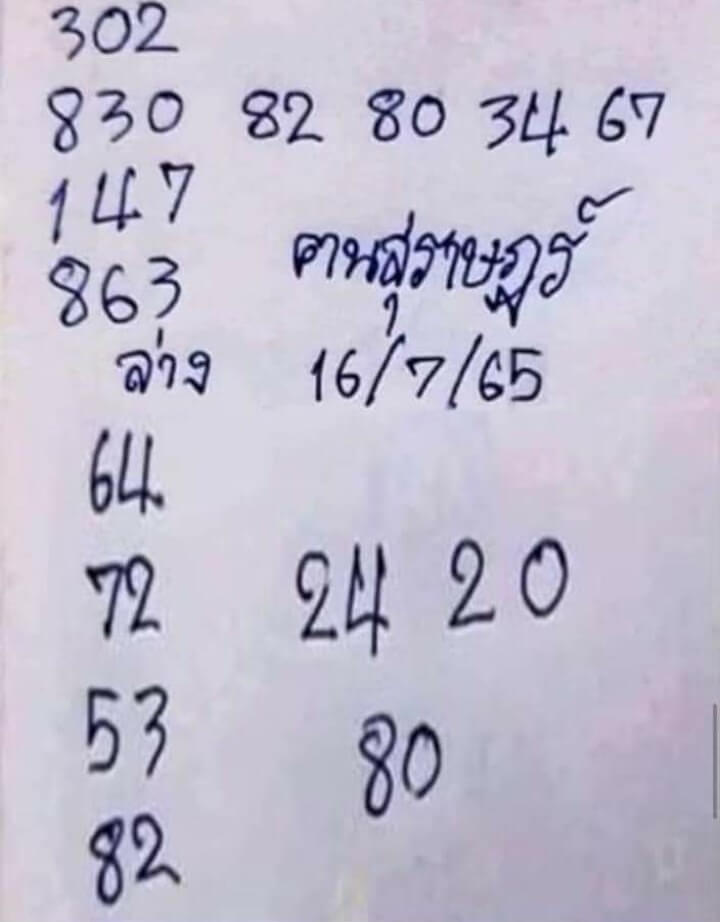 302
830 82 80 34 67
147
คนสุราษฎร์
863
ล่าง 16/7/65
64
72 24 20
53
80
82